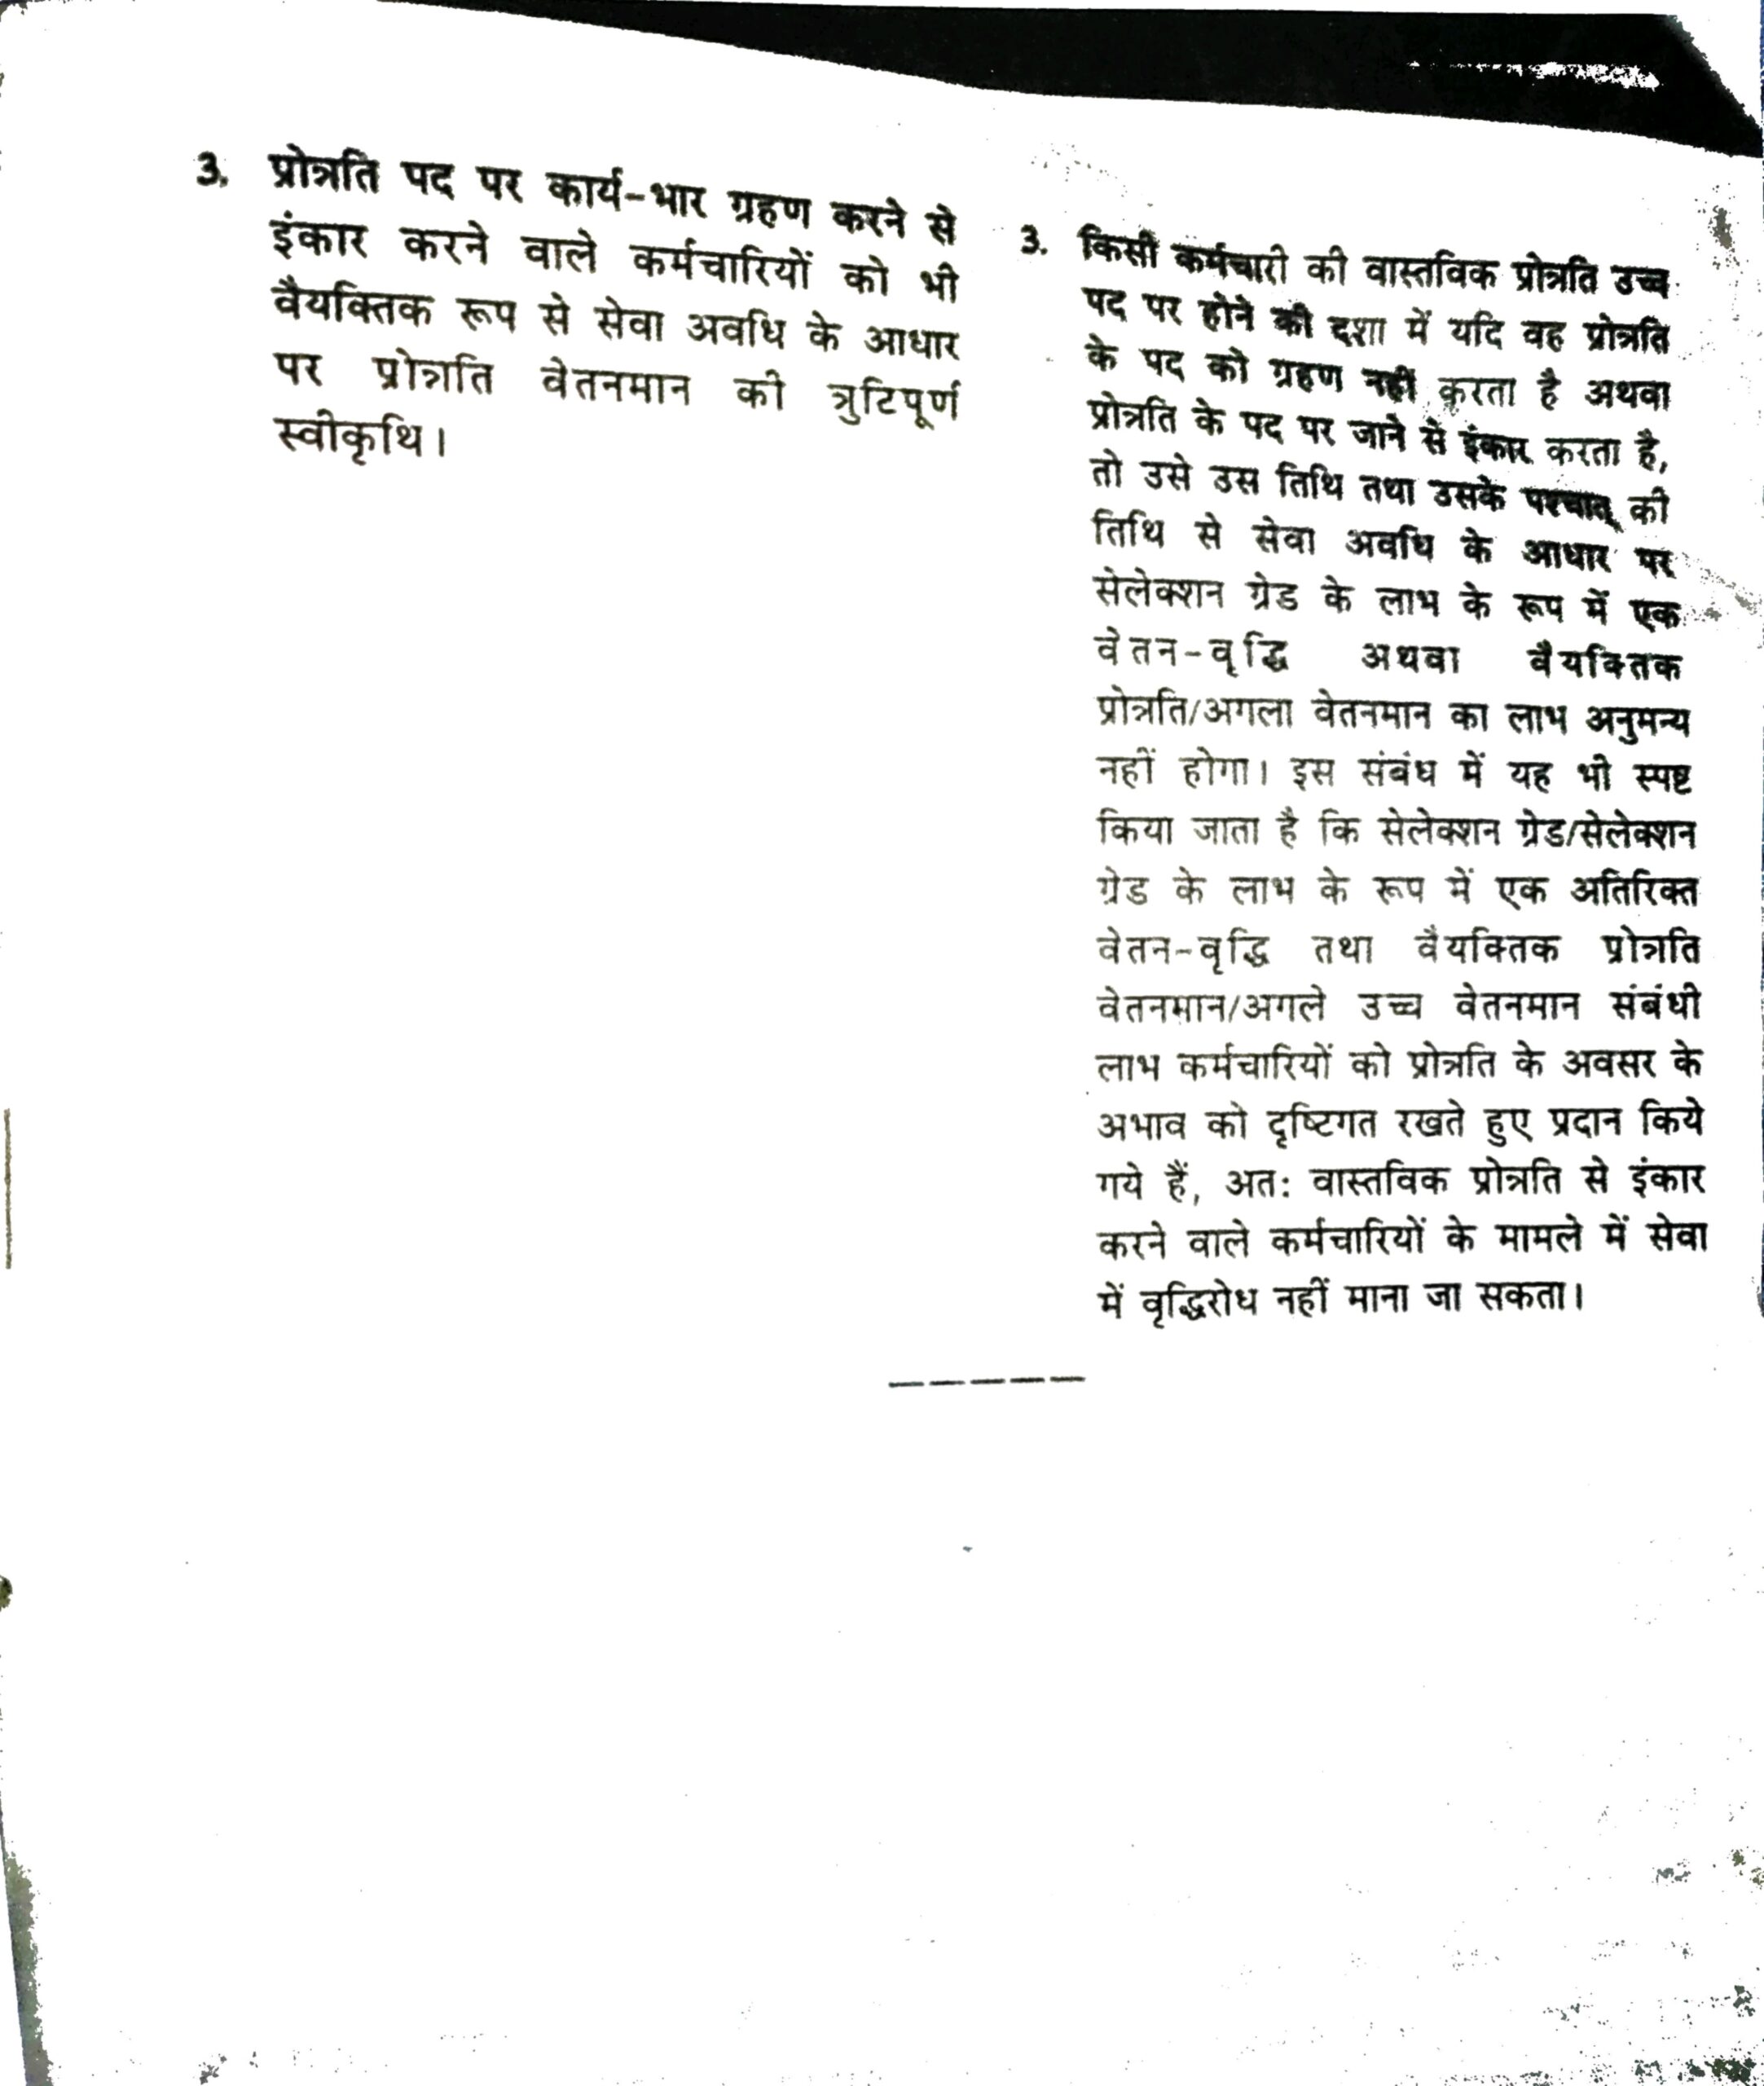 3. प्रोन्नति पद पर कार्य-भार ग्रहण करने से
इंकार करने वाले कर्मचारियों को भी
वैयक्तिक रूप से सेवा अवधि के आधार
पर प्रोन्नति वेतनमान की त्रुटिपूर्ण
स्वीकृथि।
3. किसी कर्मचारी की वास्तविक प्रोन्नति उच्च
पद पर होने की दशा में यदि वह प्रोन्नति
के पद को ग्रहण नहीं करता है अथवा
प्रोन्नति के पद पर जाने से इंकार करता है,
तो उसे उस तिथि तथा उसके पश्चात् की
तिथि से सेवा अवधि के आधार पर
सेलेक्शन ग्रेड के लाभ के रूप में एक
वेतन-वृद्धि अथवा वैयक्तिक
प्रोन्नति/अगला वेतनमान का लाभ अनुमन्य
नहीं होगा। इस संबंध में यह भी स्पष्ट
किया जाता है कि सेलेक्शन ग्रेड/सेलेक्शन
ग्रेड के लाभ के रूप में एक अतिरिक्त
वेतन-वृद्धि तथा वैयक्तिक प्रोन्नति
वेतनमान/अगले उच्च वेतनमान संबंधी
लाभ कर्मचारियों को प्रोन्नति के अवसर के
अभाव को दृष्टिगत रखते हुए प्रदान किये
गये हैं, अतः वास्तविक प्रोन्नति से इंकार
करने वाले कर्मचारियों के मामले में सेवा
में वृद्धिरोध नहीं माना जा सकता।
-----